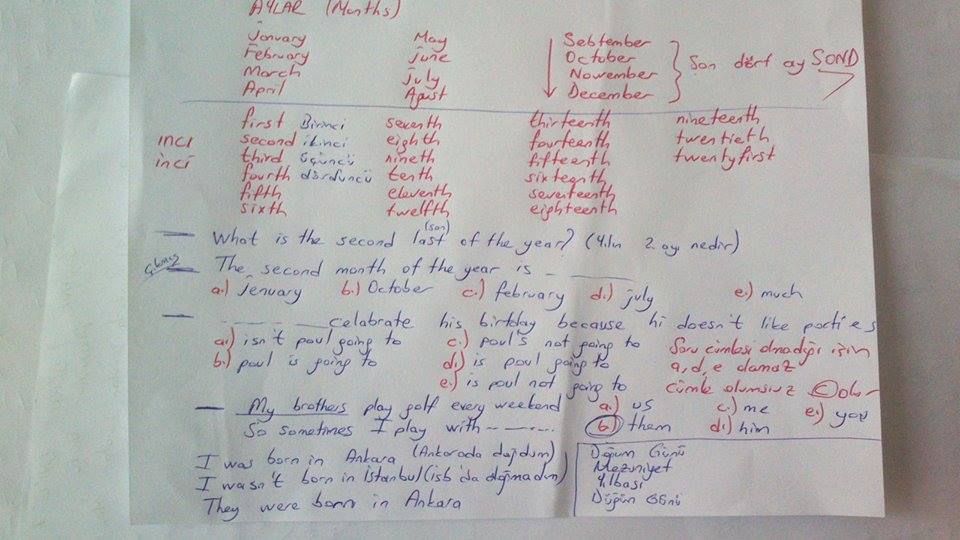 AYLAR (Months)
January May Sebtember
February june October
March july Nowember
April Agust December
Son dört ay SOND
first Birinci seventh thirteenth nineteenth
INCI second ikinci eighth fourteenth twentieth
inci third üçüncü nineth fifteenth twentyfirst
fourth dördüncü tenth sixteenth
fifth eleventh seventeenth
sixth twelfth eighteenth
(son)
— What is the second last of the year? (Yılın 2. ayı nedir)
— The second month of the year is - ______
a.) jenuary b.) October c.) february d.) july e.) much
— - - - ___ celebrate his birtday because hi doesn't like parties
a.) isn't poul going to c.) poul's not going to Soru cümlesi olmadığı için
b.) poul is going to d.) is poul going to a, d, e olamaz
e.) is poul not going to cümle olumsuz C olur
— My brothers play golf every weekend a.) us c.) me e.) you
So sometimes I play with ------- b.) them d.) him
I was born in Ankara (Ankarada doğdum)
I wasn't born in İstanbul (isb'da doğmadım)
They were born in Ankara
Doğum Günü
Mezuniyet
Yılbaşı
Düğün Günü